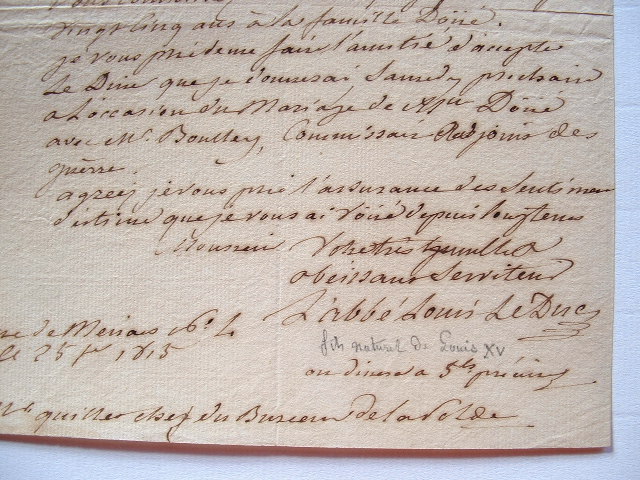 vingt cinq ans à la famille Dörié.
je vous prie de me fair l'amitié d'accepte
Le Dine que je donnerai Samedy prochain
a L'occasion du Mariage de Mlle Dörié
avec Mr. Boulley, Commissair adjoins des
guerre.
agreez je vous prie l'assurance des Sentimen
d'estime que je vous ai voüé depuis longtems
Monsieur Votre très humble &
obeissant Serviteur
L'abbé Louis Le Duc
de Menais No. 4
le 25 1815
fils naturel de Louis XV
on dinera a 5h précises
Mr quiller chef du Bureau de la Solde